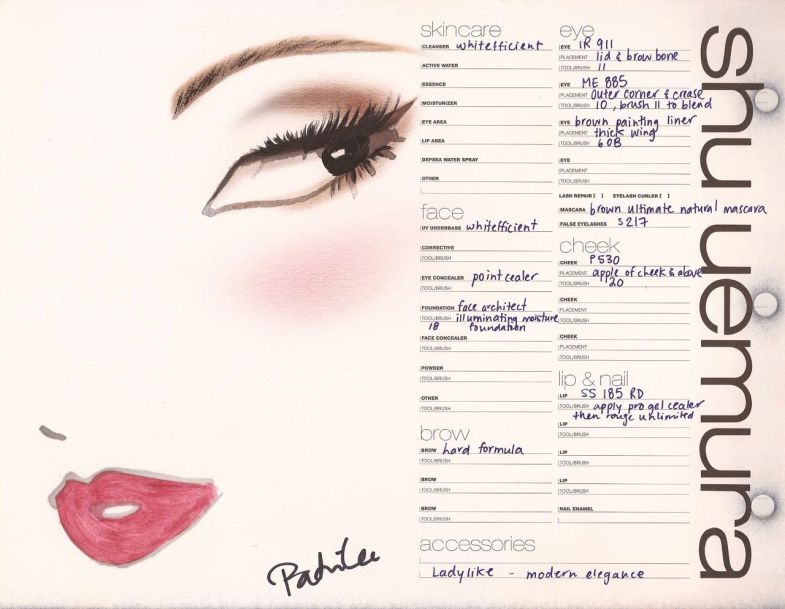 skincare
CLEANSER whitefficient
ACTIVE WATER
ESSENCE
MOISTURIZER
EYE AREA
LIP AREA
DEPSEA WATER SPRAY
OTHER
face
UV UNDERBASE whitefficient
CORRECTIVE
TOOL/BRUSH
EYE CONCEALER pointcealer
TOOL/BRUSH
FOUNDATION face architect
TOOL/BRUSH illuminating moisture
18 foundation
FACE CONCEALER
TOOL/BRUSH
POWDER
TOOL/BRUSH
OTHER
TOOL/BRUSH
brow
BROW hard formula
TOOL/BRUSH
BROW
TOOL/BRUSH
BROW
TOOL/BRUSH
accessories
Ladylike - modern elegance
eye
EYE IR 911
PLACEMENT lid & brow bone
TOOL/BRUSH 11
EYE ME 885
PLACEMENT outer corner & crease
TOOL/BRUSH 10, brush 11 to blend
EYE brown painting liner
PLACEMENT thick wing
TOOL/BRUSH 60B
EYE
PLACEMENT
TOOL/BRUSH
LASH REPAIR [ ] EYELASH CURLER [ ]
MASCARA brown ultimate natural mascara
FALSE EYELASHES S217
cheek
CHEEK P530
PLACEMENT apple of cheek & above
TOOL/BRUSH 20
CHEEK
PLACEMENT
TOOL/BRUSH
CHEEK
PLACEMENT
TOOL/BRUSH
lip & nail
LIP SS 185 RD
TOOL/BRUSH apply pro gel cealer
then rouge unlimited
LIP
TOOL/BRUSH
LIP
TOOL/BRUSH
LIP
TOOL/BRUSH
NAIL ENAMEL
shu uemura